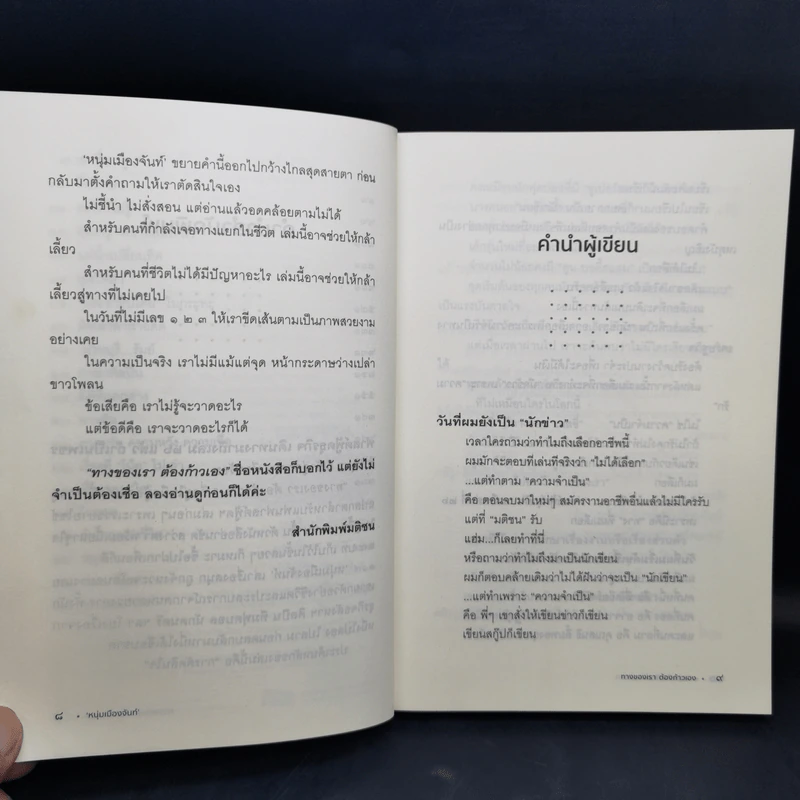 'หนุ่มเมืองจันท์' ขยายคำนี้ออกไปกว้างไกลสุดสายตา ก่อน
กลับมาตั้งคำถามให้เราตัดสินใจเอง
ไม่ชี้นำ ไม่สั่งสอน แต่อ่านแล้วอดคล้อยตามไม่ได้
สำหรับคนที่กำลังเจอทางแยกในชีวิต เล่มนี้อาจช่วยให้กล้า
เลี้ยว
สำหรับคนที่ชีวิตไม่ได้มีปัญหาอะไร เล่มนี้อาจช่วยให้กล้า
เลี้ยวสู่ทางที่ไม่เคยไป
ในวันที่ไม่มีเลข ๑ ๒ ๓ ให้เราขีดเส้นตามเป็นภาพสวยงาม
อย่างเคย
ในความเป็นจริง เราไม่มีแม้แต่จุด หน้ากระดาษว่างเปล่า
ขาวโพลน
ข้อเสียคือ เราไม่รู้จะวาดอะไร
แต่ข้อดีคือ เราจะวาดอะไรก็ได้
"ทางของเรา ต้องก้าวเอง" ชื่อหนังสือก็บอกไว้ แต่ยังไม่
จำเป็นต้องเชื่อ ลองอ่านดูก่อนก็ได้ค่ะ
สำนักพิมพ์มติชน
๘ • 'หนุ่มเมืองจันท์'
คำนำผู้เขียน
วันที่ผมยังเป็น "นักข่าว"
เวลาใครถามว่าทำไมถึงเลือกอาชีพนี้
ผมมักจะตอบทีเล่นทีจริงว่า "ไม่ได้เลือก"
...แต่ทำตาม "ความจำเป็น"
คือ ตอนจบมาใหม่ๆ สมัครงานอาชีพอื่นแล้วไม่มีใครรับ
แต่ที่ "มติชน" รับ
แฮ่ม...ก็เลยทำที่นี่
หรือถามว่าทำไมถึงมาเป็นนักเขียน
ผมก็ตอบคล้ายเดิมว่าไม่ได้ฝันว่าจะเป็น "นักเขียน"
...แต่ทำเพราะ "ความจำเป็น"
คือ พี่ๆ เขาสั่งให้เขียนข่าวก็เขียน
เขียนสกู๊ปก็เขียน
ทางของเรา ต้องก้าวเอง • ๙